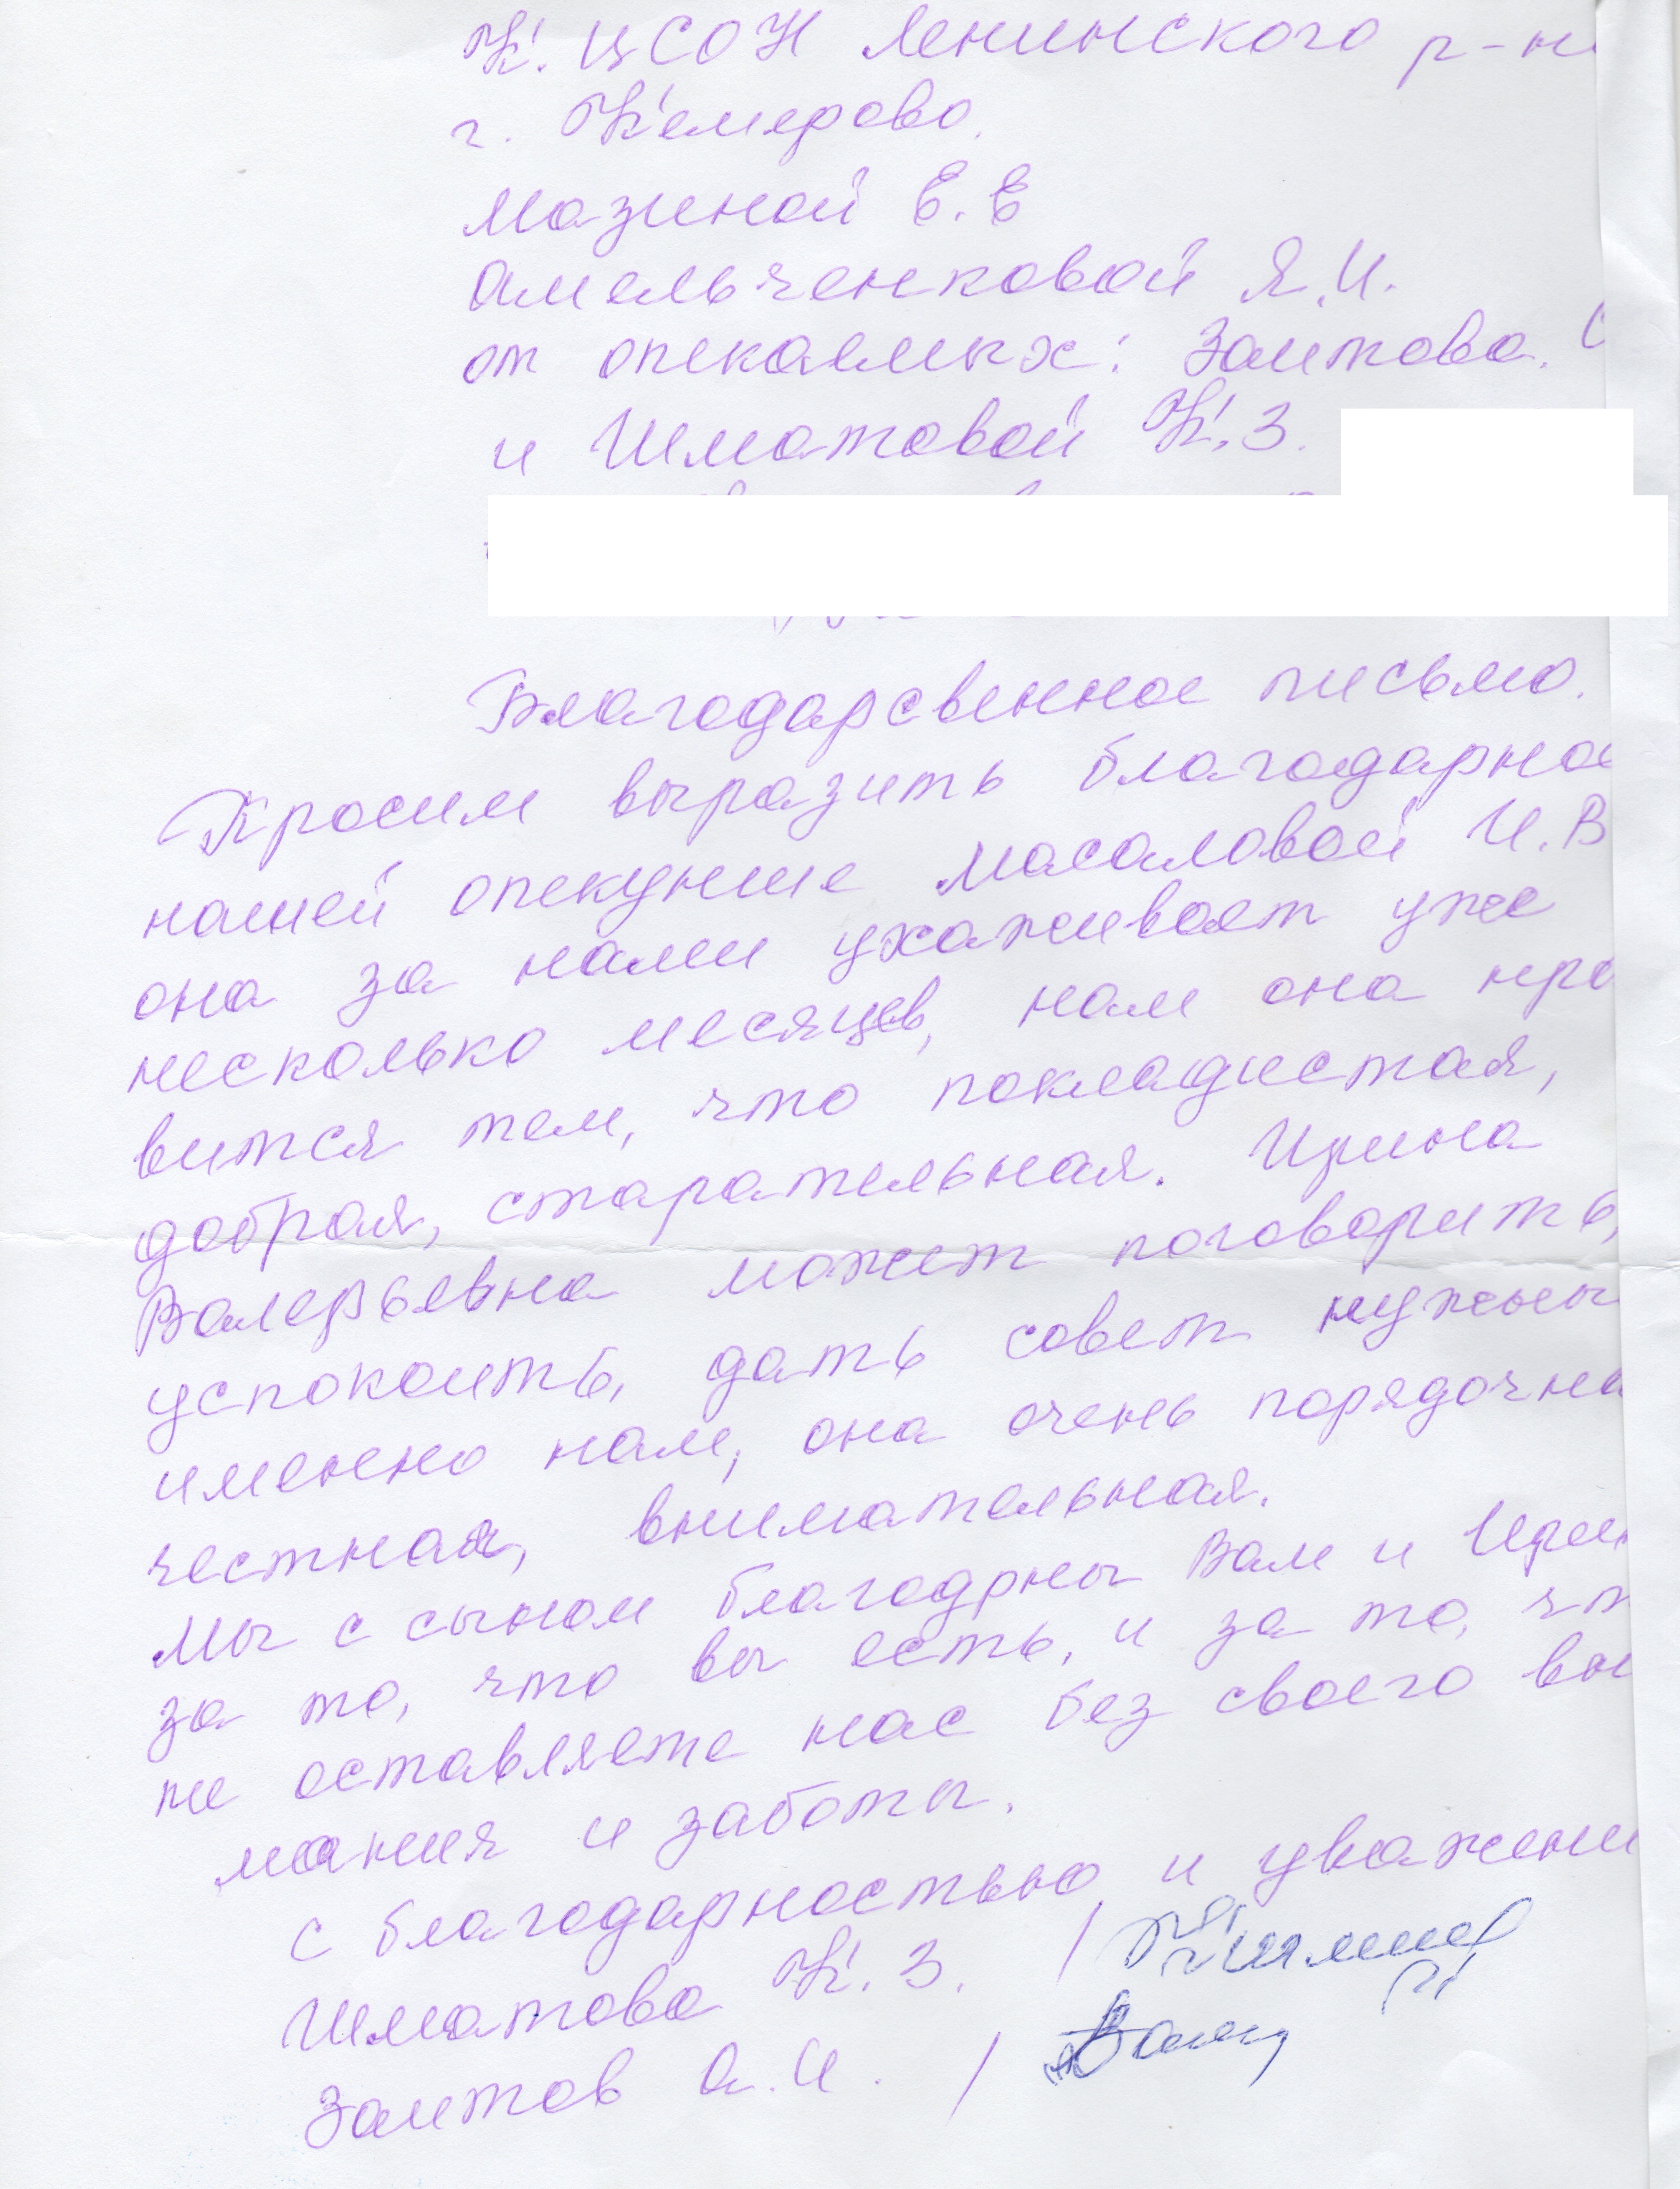 К. ЦСОН Ленинского р-н
г. Кемерово.
Мазиной Е.Е
Амельченковой Я.И.
от опекаемых: Заитова.
и Шматовой К.З.
Благодарсвенное письмо.
Просим выразить благодарнос
нашей опекунше Масаловой И.В
она за нами ухаживает уже
несколько месяцев, нам она нра
вится тем, что покладистая,
добрая, старательная. Ирина
Валерьевна может поговорить,
успокоить, дать совет нужны
именно нам, она очень порядочна
честная, внимательная.
Мы с сыном благодрны Вам и Ирин
за то, что вы есть, и за то, чт
не оставляете нас без своего вни
мания и заботы.
с благодарностью и уважени
Шматова К. З. /
Заитов А.И. /